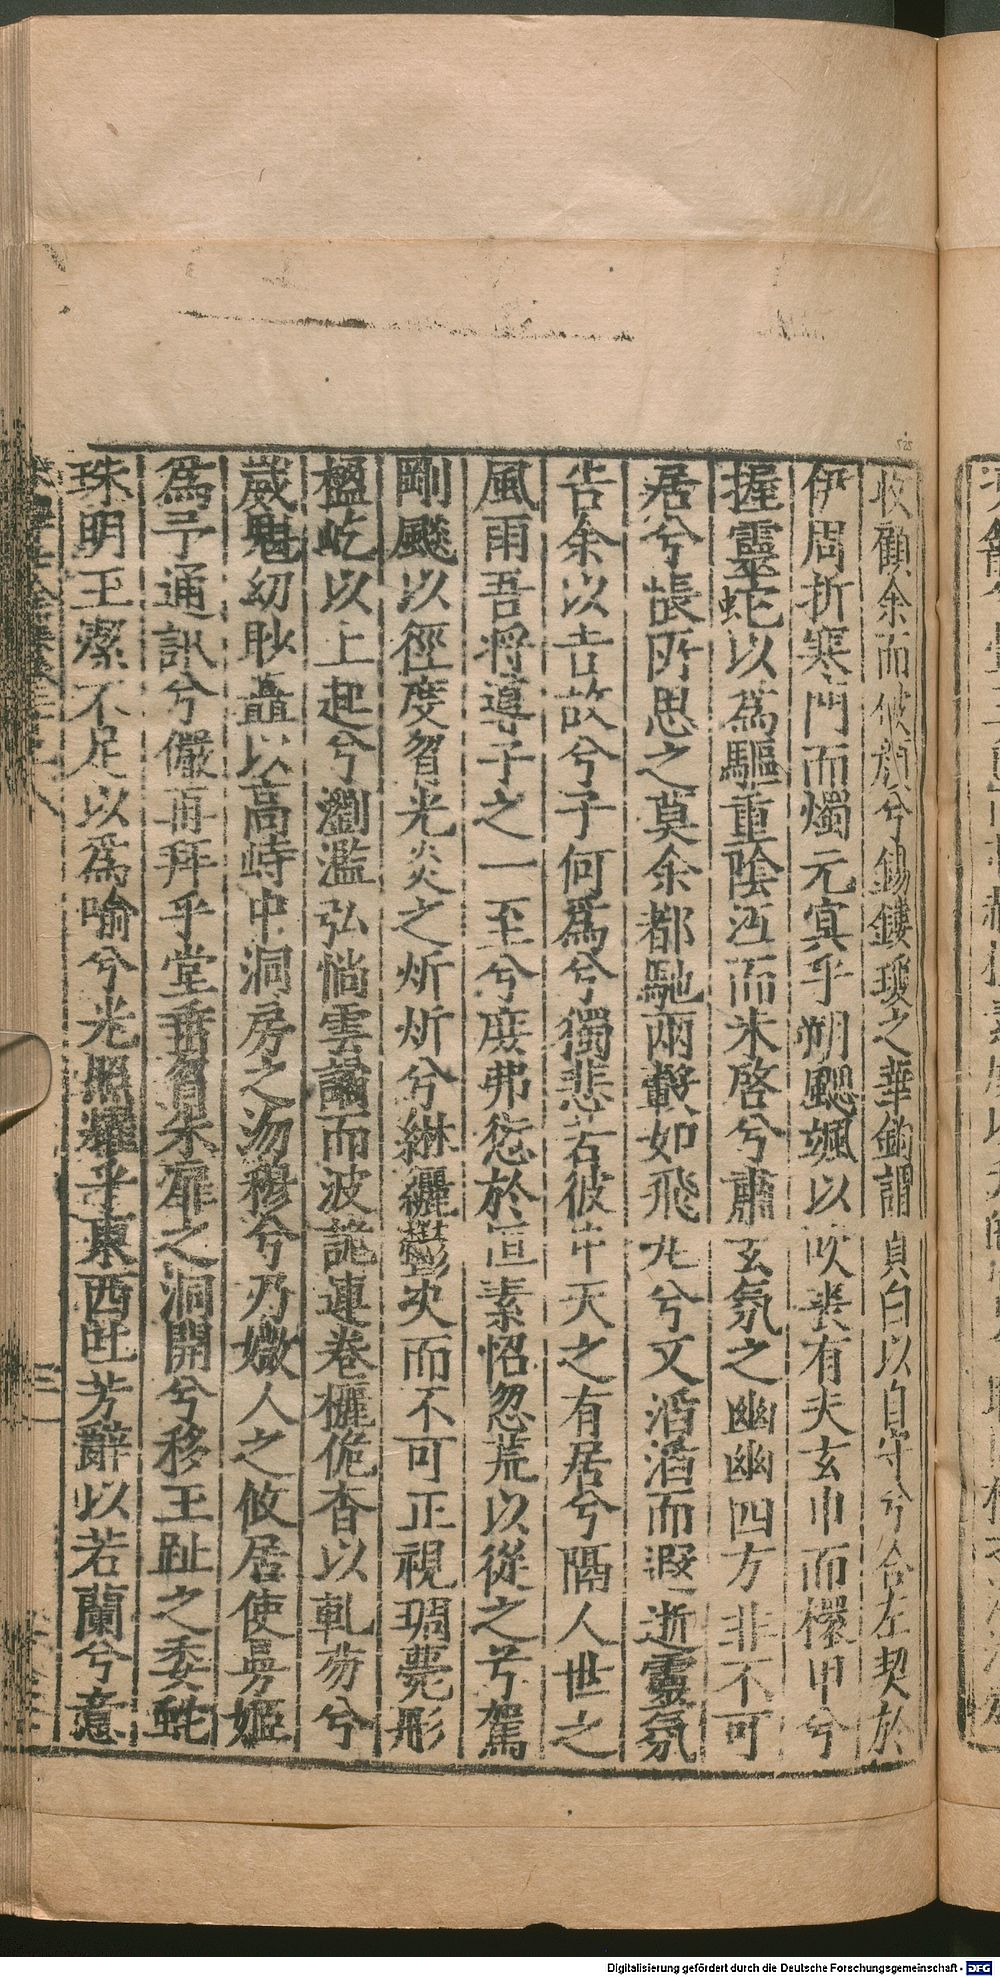 收顧余而破顏兮錫鏤瓊之華鉤謂貞白以自守兮合左契於
伊周折寒門而燭元冥乎朔颸颯以吹喪有夫玄巾而櫂甲兮
握靈蛇以為驅重陰沍而未啓兮肅玄氛之幽幽四方非不可
居兮悵所思之莫余都馳兩轂如飛九兮又滔滔而遐逝靈氛
告余以吉故兮子何為兮獨悲若彼中天之有居兮隔人世之
風雨吾將導子之一至兮庶弗愆於恒素怊忽荒以從之兮駕
剛飈以徑度眢光炎之炘炘兮綝纚鬱次而不可正視琱甍彤
楹屹以上起兮瀏濫弘惝雲譎而波詭連卷欐佹杳以軋芴兮
崴魁幼眇矗以高峙中洞房之沕穆兮乃媺人之攸居使曼姬
為予通訊兮儼再拜乎堂垂眢朱扉之洞開兮移玉趾之委蛇
珠明玉潔不足以為喻兮光照耀乎東西吐芳辭以若蘭兮意
Digitalisierung gefördert durch die Deutsche Forschungsgemeinschaft - DFG